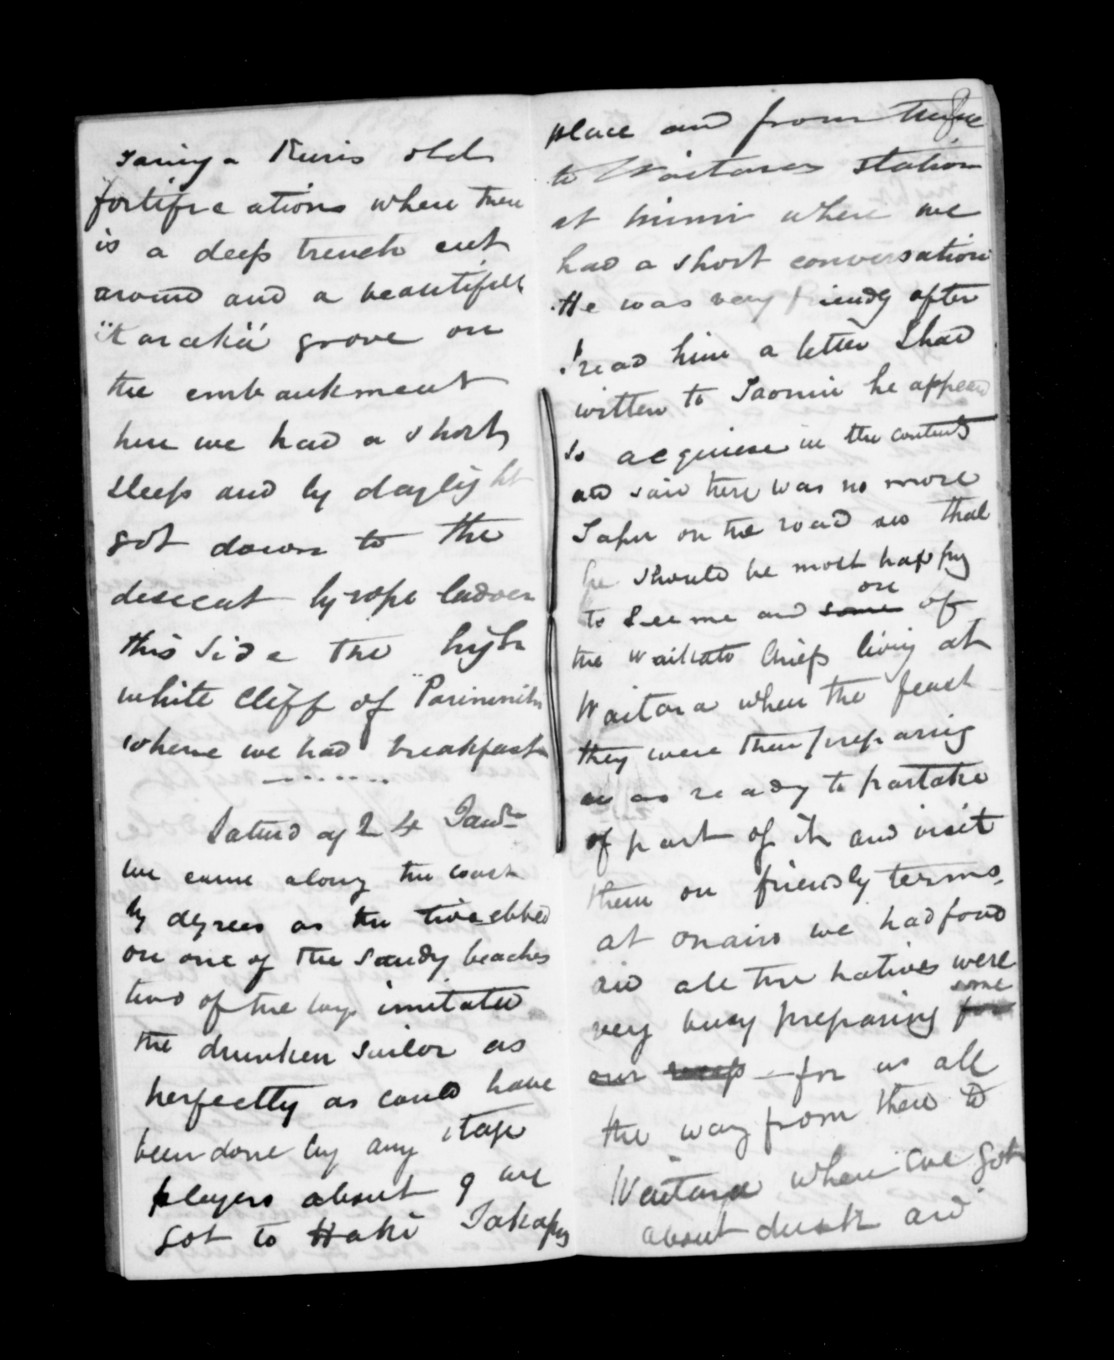 Taringa Kuris old
fortifications where there
is a deep trench cut
around and a beautifull
"Karaka" grove on
the embankment
here we had a short
sleep and by daylight
got down to the
descent by rope ladder
this side the high
white Cliff of Parininihi
where we had breakfast
Saturday 24 Jany
we came along the coast
by degrees as the tide ebbed
on one of the sandy beaches
two of the boys imitated
the drunken sailor as
perfectly as could have
been done by any stage
players about 9 we
got to
place and from
to Waitaras station
at Mimi where we
had a short conversation
He was very friendly after
I read him a letter I had
written to Taonui he appeared
to acquiese in the contents
and said there was no more
Tapu on the road and that
he should be most happy
to see me and some one of
the Waikato Chiefs living at
Waitara when the feast
they were then preparing
was ready to partake
of part of it and visit
them on friendly terms.
at onairo we had food
and all the natives were
very busy preparing for some
our for us all
the way from there to
Waitara where we got
about dusk and